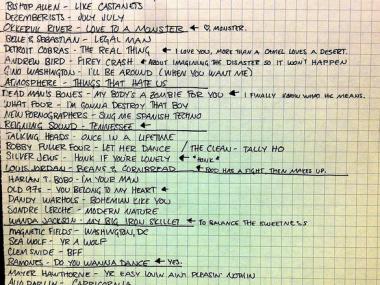 BISHOP ALLEN - LIKE CASTANETS
DECEMBERISTS - JULY JULY
OKKERVIL RIVER - LOVE TO A MONSTER ← ♡, MONSTER.
BELLE & SEBASTIAN - LEGAL MAN
DETROIT COBRAS - THE REAL THING ← I LOVE YOU, MORE THAN A CAMEL LOVES A DESERT.
ANDREW BIRD - FIREY CRASH ← ABOUT IMAGINING THE DISASTER SO IT WON'T HAPPEN
GINO WASHINGTON - I'LL BE AROUND (WHEN YOU WANT ME)
ATMOSPHERE - THINGS THAT HATE US
DEAD MAN'S BONES - MY BODY'S A ZOMBIE FOR YOU ← I FINALLY KNOW WHAT HE MEANS.
WHAT FOUR - I'M GONNA DESTROY THAT BOY
NEW PORNOGRAPHERS - SING ME SPANISH TECHNO
REIGNING SOUND - TENNESSEE ←
TALKING HEADS - ONCE IN A LIFETIME
BOBBY FULLER FOUR - LET HER DANCE / THE CLEAN - TALLY HO
SILVER JEWS - HONK IF YOU'RE LONELY ← *HONK*
LOUIS JORDAN - BEANS & CORNBREAD ← FOOD HAS A FIGHT, THEN MAKES UP.
HARLAN T. BOBO - I'M YOUR MAN
OLD 97'S - YOU BELONG TO MY HEART ←
DANDY WARHOLS - BOHEMIAN LIKE YOU
SONDRE LERCHE - MODERN NATURE
WANDA JACKSON - MY BIG IRON SKILLET ← TO BALANCE THE SWEETNESS
MAGNETIC FIELDS - WASHINGTON, DC
SEA WOLF - YR A WOLF
CLEM SNIDE - BFF
RAMONES - DO YOU WANNA DANCE ← YES.
MAYER HAWTHORNE - YR EASY LOVIN AIN'T PLEASIN' NOTHIN
ALIO DARLIN - CAPRICORNIA